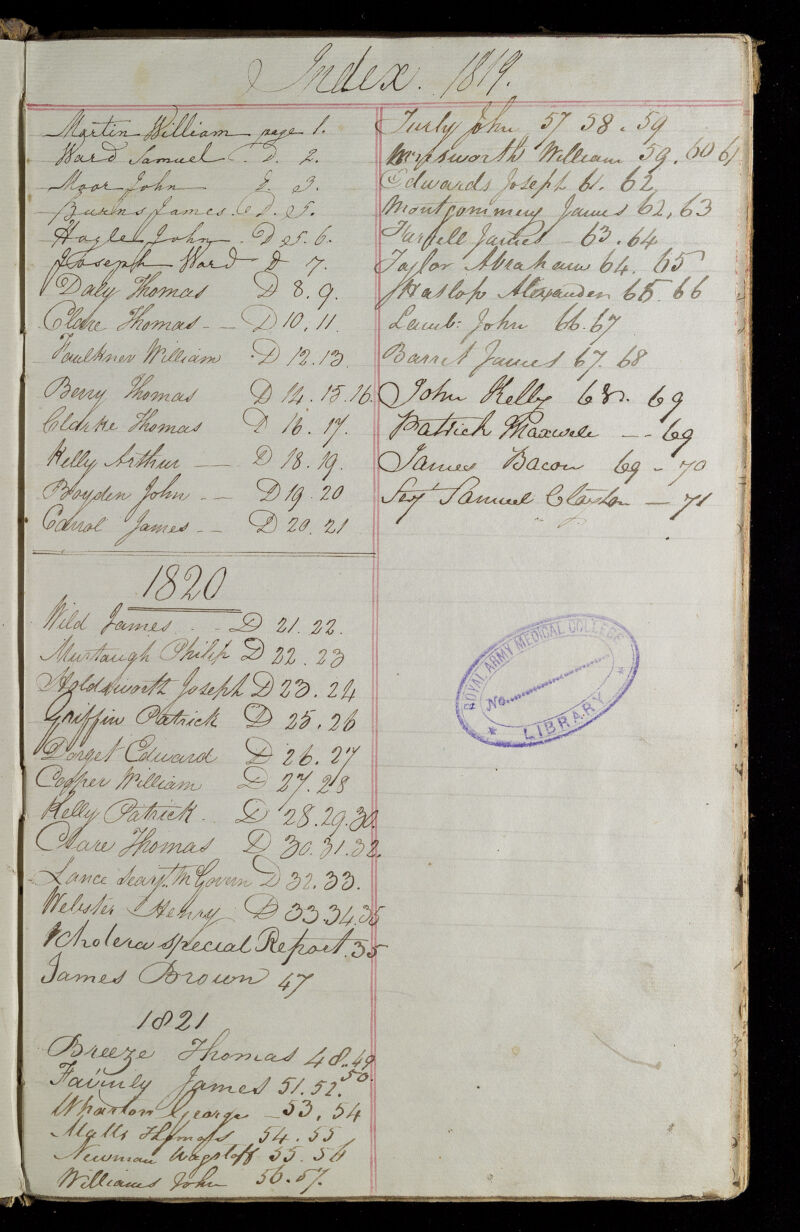 Index. 1819.
Martin William page 1.
Ward Samuel . D. 2.
Moor John D. 3.
Burns James. D. 5.
Hagle John . D 5. 6.
Joseph Ward D 7.
Daly Thomas D 8. 9.
Clare Thomas - - D 10. 11.
Faulkner William D 12. 13
Berry Thomas D 14. 15. 16.
Clarke Thomas D 16. 17.
Kelly Arthur - D 18. 19.
Boyden John - D 19. 20
Carrol James - D 20. 21
1820
Wild James D 21. 22.
Murtaugh Philip D 22. 23
Holdsworth Joseph D 23. 24
Griffin Patrick D 25. 26
Dorget Edward D 26. 27
Cooper William D 27. 28
Kelly Patrick. D 28. 29. 30.
Clare Thomas D 30. 31. 32.
Lance Govern D 32. 33.
Webster Henry D 33. 34. 35
Cholera special Report. 35
James Brown 47
1821
Breeze Thomas 48. 49
50.
James 51. 52.
Wharton George - 53. 54
Thomas 54. 55
Newman Wagstaff 55. 56
Williams John 56. 57.
Turly John 57 58. 59
William 59. 60 61
Edwards Joseph 61. 62
Montgommery James 62, 63
Farrell James - 63. 64
Taylor Abraham 64. 65
Haslop Alexander 65. 66
Lamb: John 66. 67
Barret James 67. 68
John Kelly 68. 69
Patrick Maxwele - - 69
James Bacon 69 - 70
Serj Samuel Claxton - 71
ROYAL ARMY MEDICAL COLLEGE
No.
* LIBRARY *